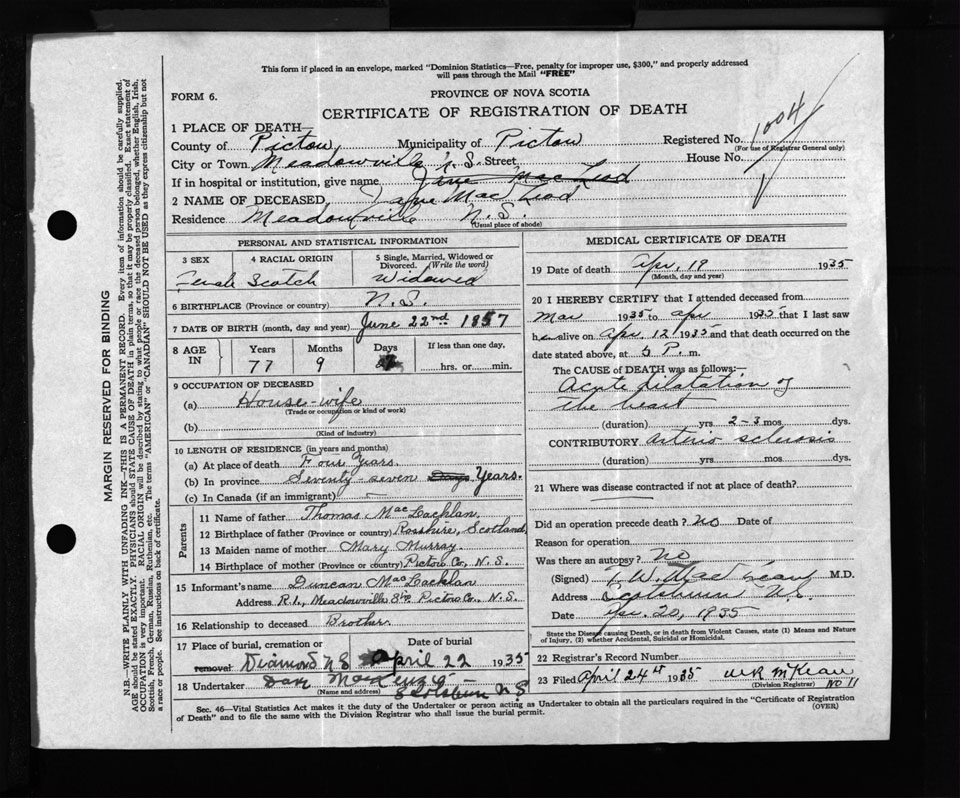 This form if placed in an envelope, marked "Dominion Statistics—Free, penalty for improper use, $300," and properly addressed
will pass through the Mail "FREE"
PROVINCE OF NOVA SCOTIA
FORM 6.
CERTIFICATE OF REGISTRATION OF DEATH
1 PLACE OF DEATH—
County of Pictou, Municipality of Pictou Registered No. 1004
(For use of Registrar General only)
City or Town Meadowville N.S. Street House No.
If in hospital or institution, give name Jane MacLeod
2 NAME OF DECEASED Jane MacLeod
Residence Meadowville N.S.
(Usual place of abode)
PERSONAL AND STATISTICAL INFORMATION
3 SEX 4 RACIAL ORIGIN 5 Single, Married, Widowed or Divorced. (Write the word)
Female Scotch Widowed
6 BIRTHPLACE (Province or country) N.S.
7 DATE OF BIRTH (month, day and year) June 22nd 1857
8 AGE IN Years Months Days If less than one day,
77 9 hrs. or min.
9 OCCUPATION OF DECEASED
(a) House-wife
(Trade or occupation or kind of work)
(b)
(Kind of industry)
10 LENGTH OF RESIDENCE (in years and months)
(a) At place of death Four Years.
(b) In province Seventy-seven Years.
(c) In Canada (if an immigrant) -
Parents
11 Name of father Thomas MacLachlan.
12 Birthplace of father (Province or country) Rosshire, Scotland
13 Maiden name of mother Mary Murray.
14 Birthplace of mother (Province or country) Pictou Co., N.S.
15 Informant's name Duncan MacLachlan
Address R.1., Meadowville Stn. Pictou Co., N.S.
16 Relationship to deceased Brother.
17 Place of burial, cremation or removal Date of burial
Diamond N.S. April 22 1935
18 Undertaker Dan MacKenzie
(Name and address) Scotsburn N.S
MEDICAL CERTIFICATE OF DEATH
19 Date of death Apr. 19 1935
(Month, day and year)
20 I HEREBY CERTIFY that I attended deceased from
Mar 1935 to Apr 1935 that I last saw
her alive on Apr 12 1935 and that death occurred on the
date stated above, at 5 P. m.
The CAUSE of DEATH was as follows:—
Acute dilatation of
the heart
(duration) yrs. 2-3 mos. dys.
CONTRIBUTORY Arterio sclerosis
(duration) yrs. mos. dys.
21 Where was disease contracted if not at place of death?
Did an operation precede death? No Date of
Reason for operation
Was there an autopsy? No
(Signed) M.D.
Address Scotsburn N.S.
Date Apr. 20, 1935
State the Disease causing Death, or in death from Violent Causes, state (1) Means and Nature
of Injury, (2) whether Accidental, Suicidal or Homicidal.
22 Registrar's Record Number
23 Filed April 24th 1935 W R McKean
(Division Registrar) No 11
Sec. 46—Vital Statistics Act makes it the duty of the Undertaker or person acting as Undertaker to obtain all the particulars required in the "Certificate of Registration
of Death" and to file the same with the Division Registrar who shall issue the burial permit.
(OVER)
MARGIN RESERVED FOR BINDING
N.B.—WRITE PLAINLY WITH UNFADING INK—THIS IS A PERMANENT RECORD. Every item of information should be carefully supplied.
AGE should be stated EXACTLY. PHYSICIANS should STATE CAUSE OF DEATH in plain terms, so that it may be properly classified. Exact statement of
OCCUPATION is very important. RACIAL ORIGIN will be described by stating to what people or race the deceased person belonged, whether English, Irish,
Scottish, French, German, Russian, Ruthenian, etc. The terms "AMERICAN" or "CANADIAN" SHOULD NOT BE USED as they express citizenship but not
a race or people. See instructions on back of certificate.